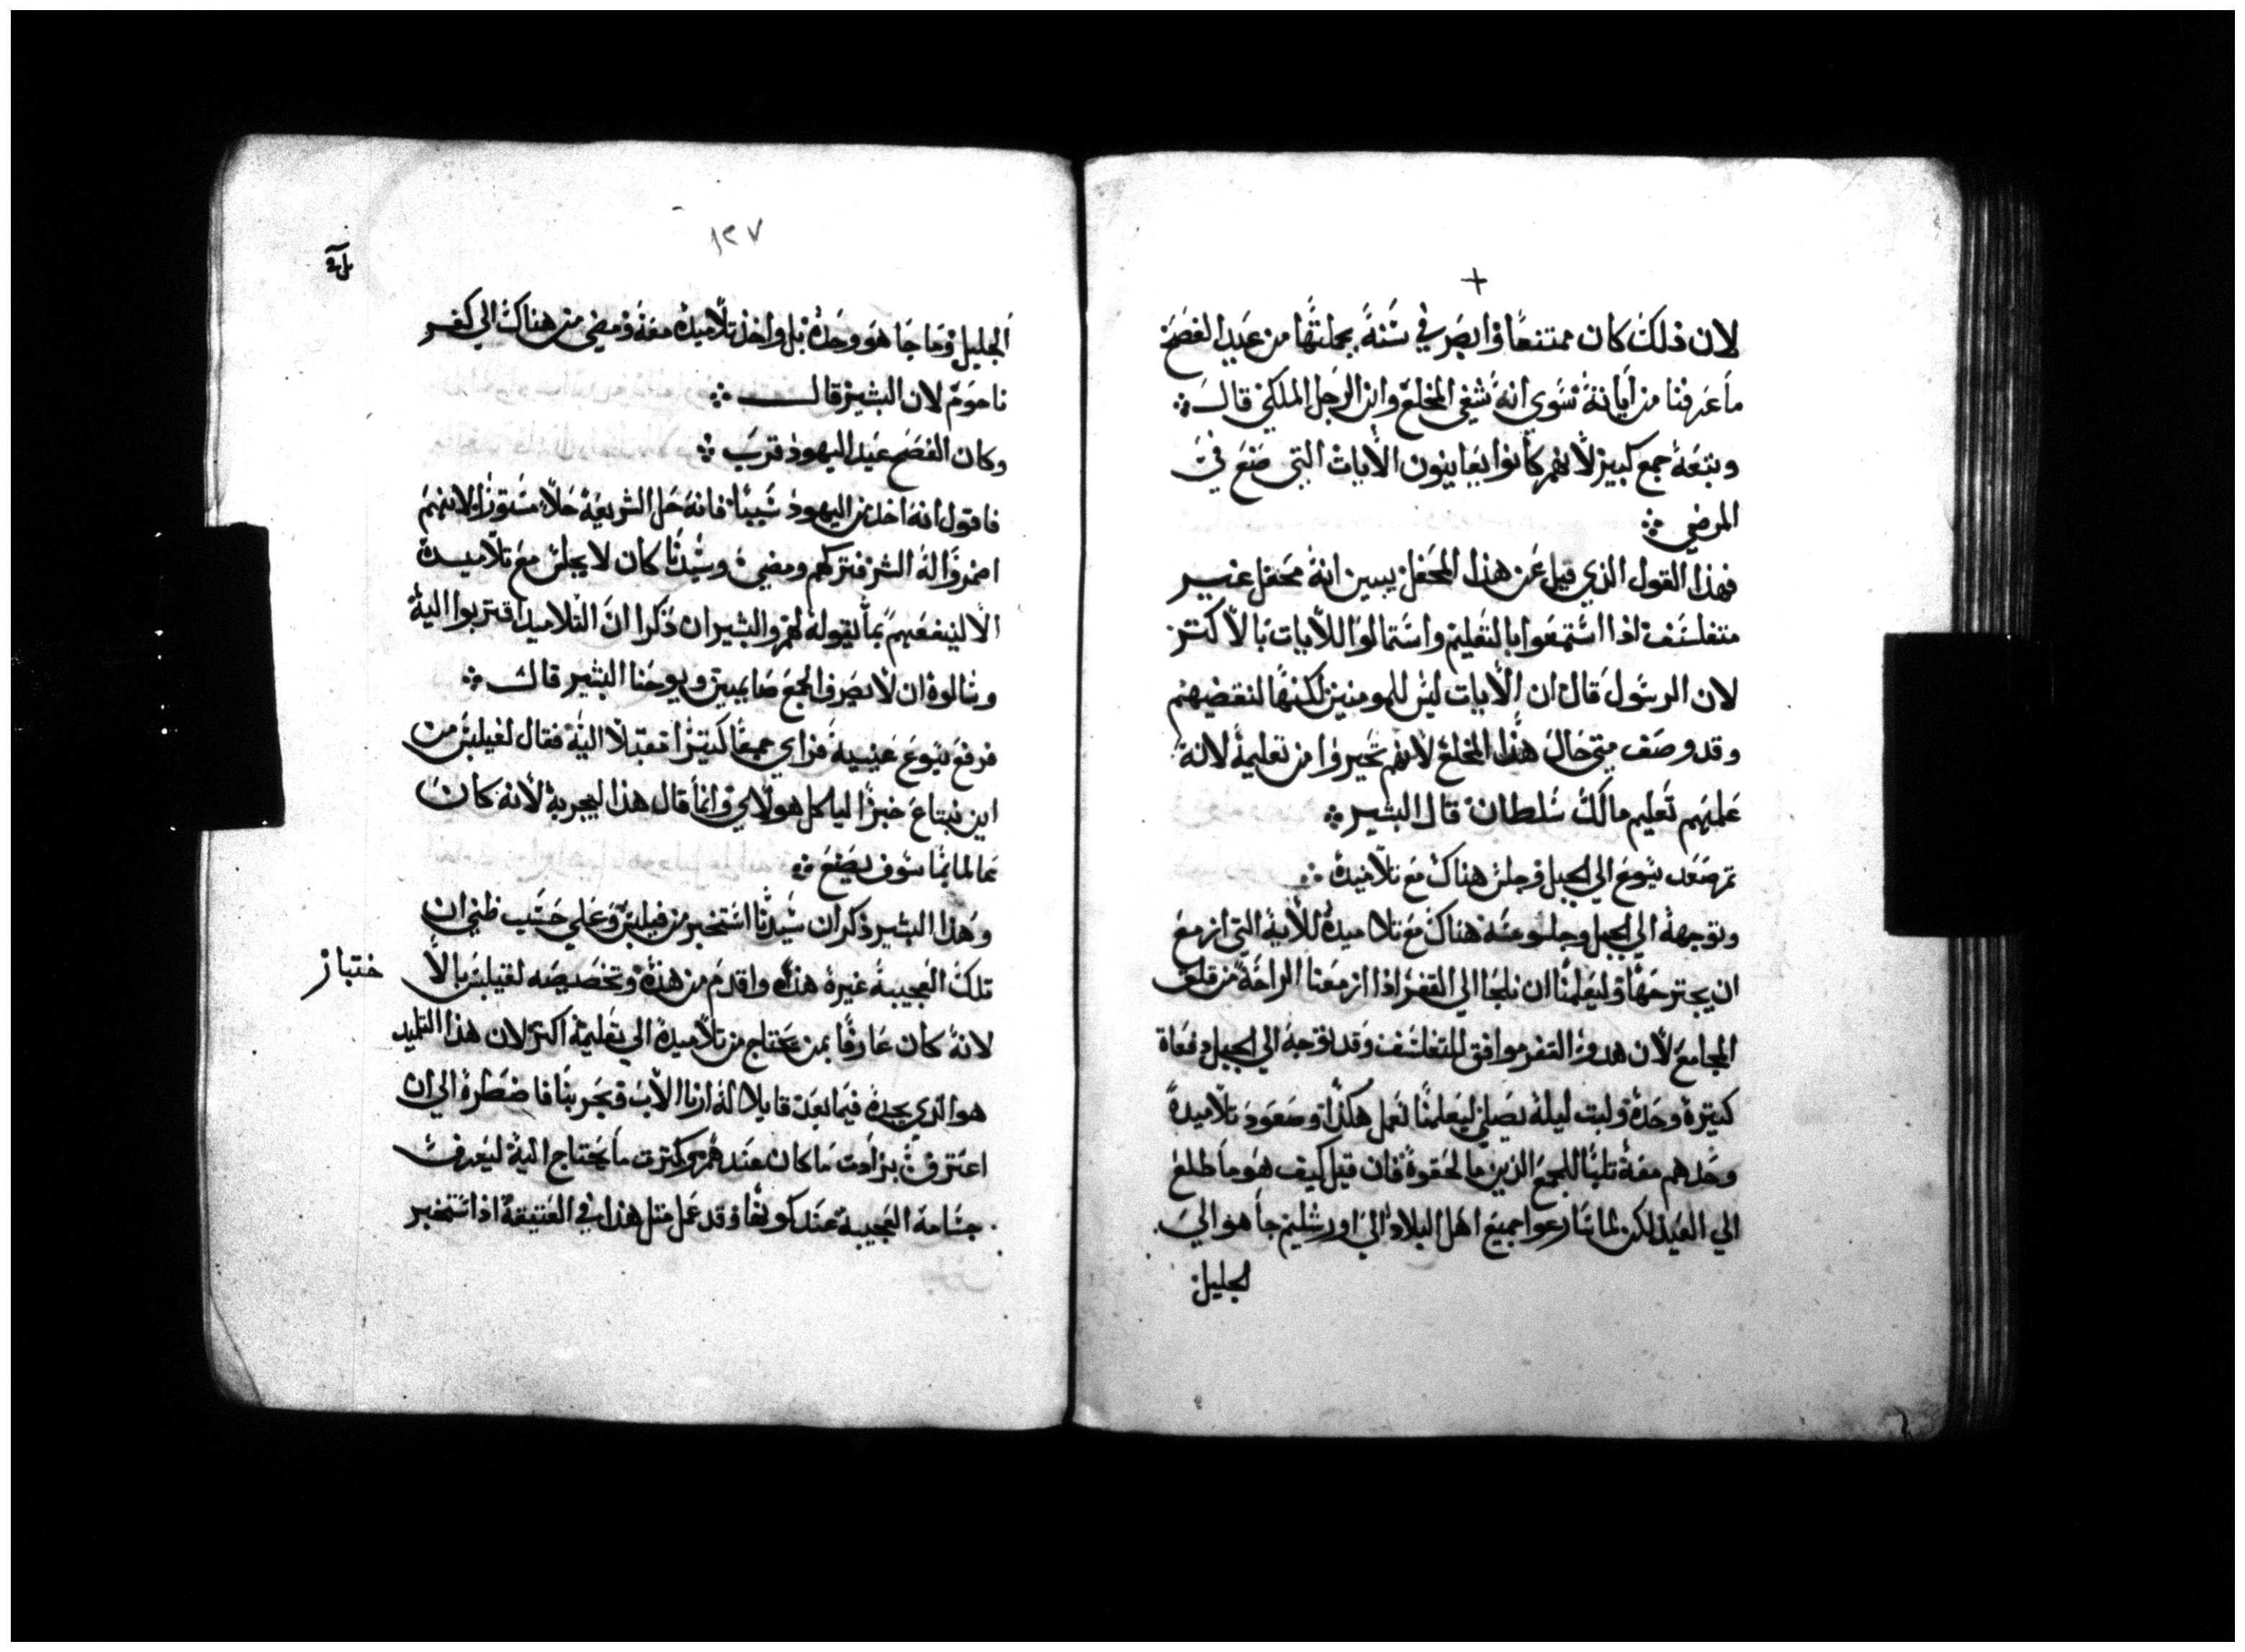 +
لان ذلك كان ممتنعا وابصر في سنة بجملتها من عيد الفصح
ما عرفنا من اياتة سوي انه شفي المخلع وابن الرجل الملكي قال
وبتعه جمع كبير لانهم كانوا يعاينون الايات التي صنع في
المرضي
فهذا القول الذي قيل عن هذا المحفل يبين انه محفل غير
متفلسف اذا استمتعوا بالتعليم واستمالوا للايات بالاكتر
لان الرسول قال ان الايات ليس للمومنين لكنها لنقضيهم
وقد وصف متي حال هذا المخلع لانهم تحيروا من تعليمه لانه
علمهم تعليم مالك سلطان قال البشير
تم صعد يسوع الي الجبل وجلس هناك مع تلاميذه
وتوجهه الي الجبل وجلوسه هناك مع تلاميذه للاية التي ازمع
ان يجترحها وليعلمنا ان نلجا الي القفر اذا ازمعنا الراحة من قلق
المجامع لان هدو القفر موافق للتفلسف وقد توجه الي الجبل دفعاة
كتيرة وحده ولبت ليلة يصلي ليعلمنا نعمل هكذا وصعود تلاميذه
وحدهم معه تلبا للجمع الذين ما لحقوه فان قيل كيف هو ما طلع
الي العيد لكن لما سارعوا جميع اهل البلاد الي اورشليم جا هو الي
الجليل
١٢٧
الجليل وما جا هو وحده بل واخذ تلاميذه معه ومضي من هناك الي كفر
ناحوم لان البشير قال
وكان الفصح عيد اليهود قرب
فاقول انه اخذ من اليهود سببا فانه حل الشريعة حلا مستورا لانهم
اضمروا له الشر فتركهم ومضي وسيدنا كان لا يجلس مع تلاميذه
الا لينفعهم بما يقوله لهم والبشيران ذكرا ان التلاميذ اقتربوا اليه
وسالوه ان لا يصرف الجمع صايمين ويوحنا البشير قال
فرفع يسوع عينيه فراي جمعا كتيرا مقبلا اليه فقال لفيلبس من
اين نبتاع خبزا لياكل هولاي وانما قال هذا ليجربه لانه كان
عالما بما سوف يصنع
وهذا البشير ذكر ان سيدنا استخبر من فيلبس وعلي حسب ظني ان
تلك العجيبة غيره هذه واقدم من هذه وتخصيصه لفيلبس بالا ختبار
لانه كان عارفا بمن يحتاج من تلاميذه الي تعليمه اكتر لان هذا التلميد
هو الذي يجده فيما بعد قايلا له ارنا الاب وتجربنا فاضطره الي ان
اعترف بزادت ما كان عندهم وكترت ما يحتاج اليه ليعرف
جسامة العجيبة عند كونها وقد عمل متل هذا في العتيقة اذا استخبر